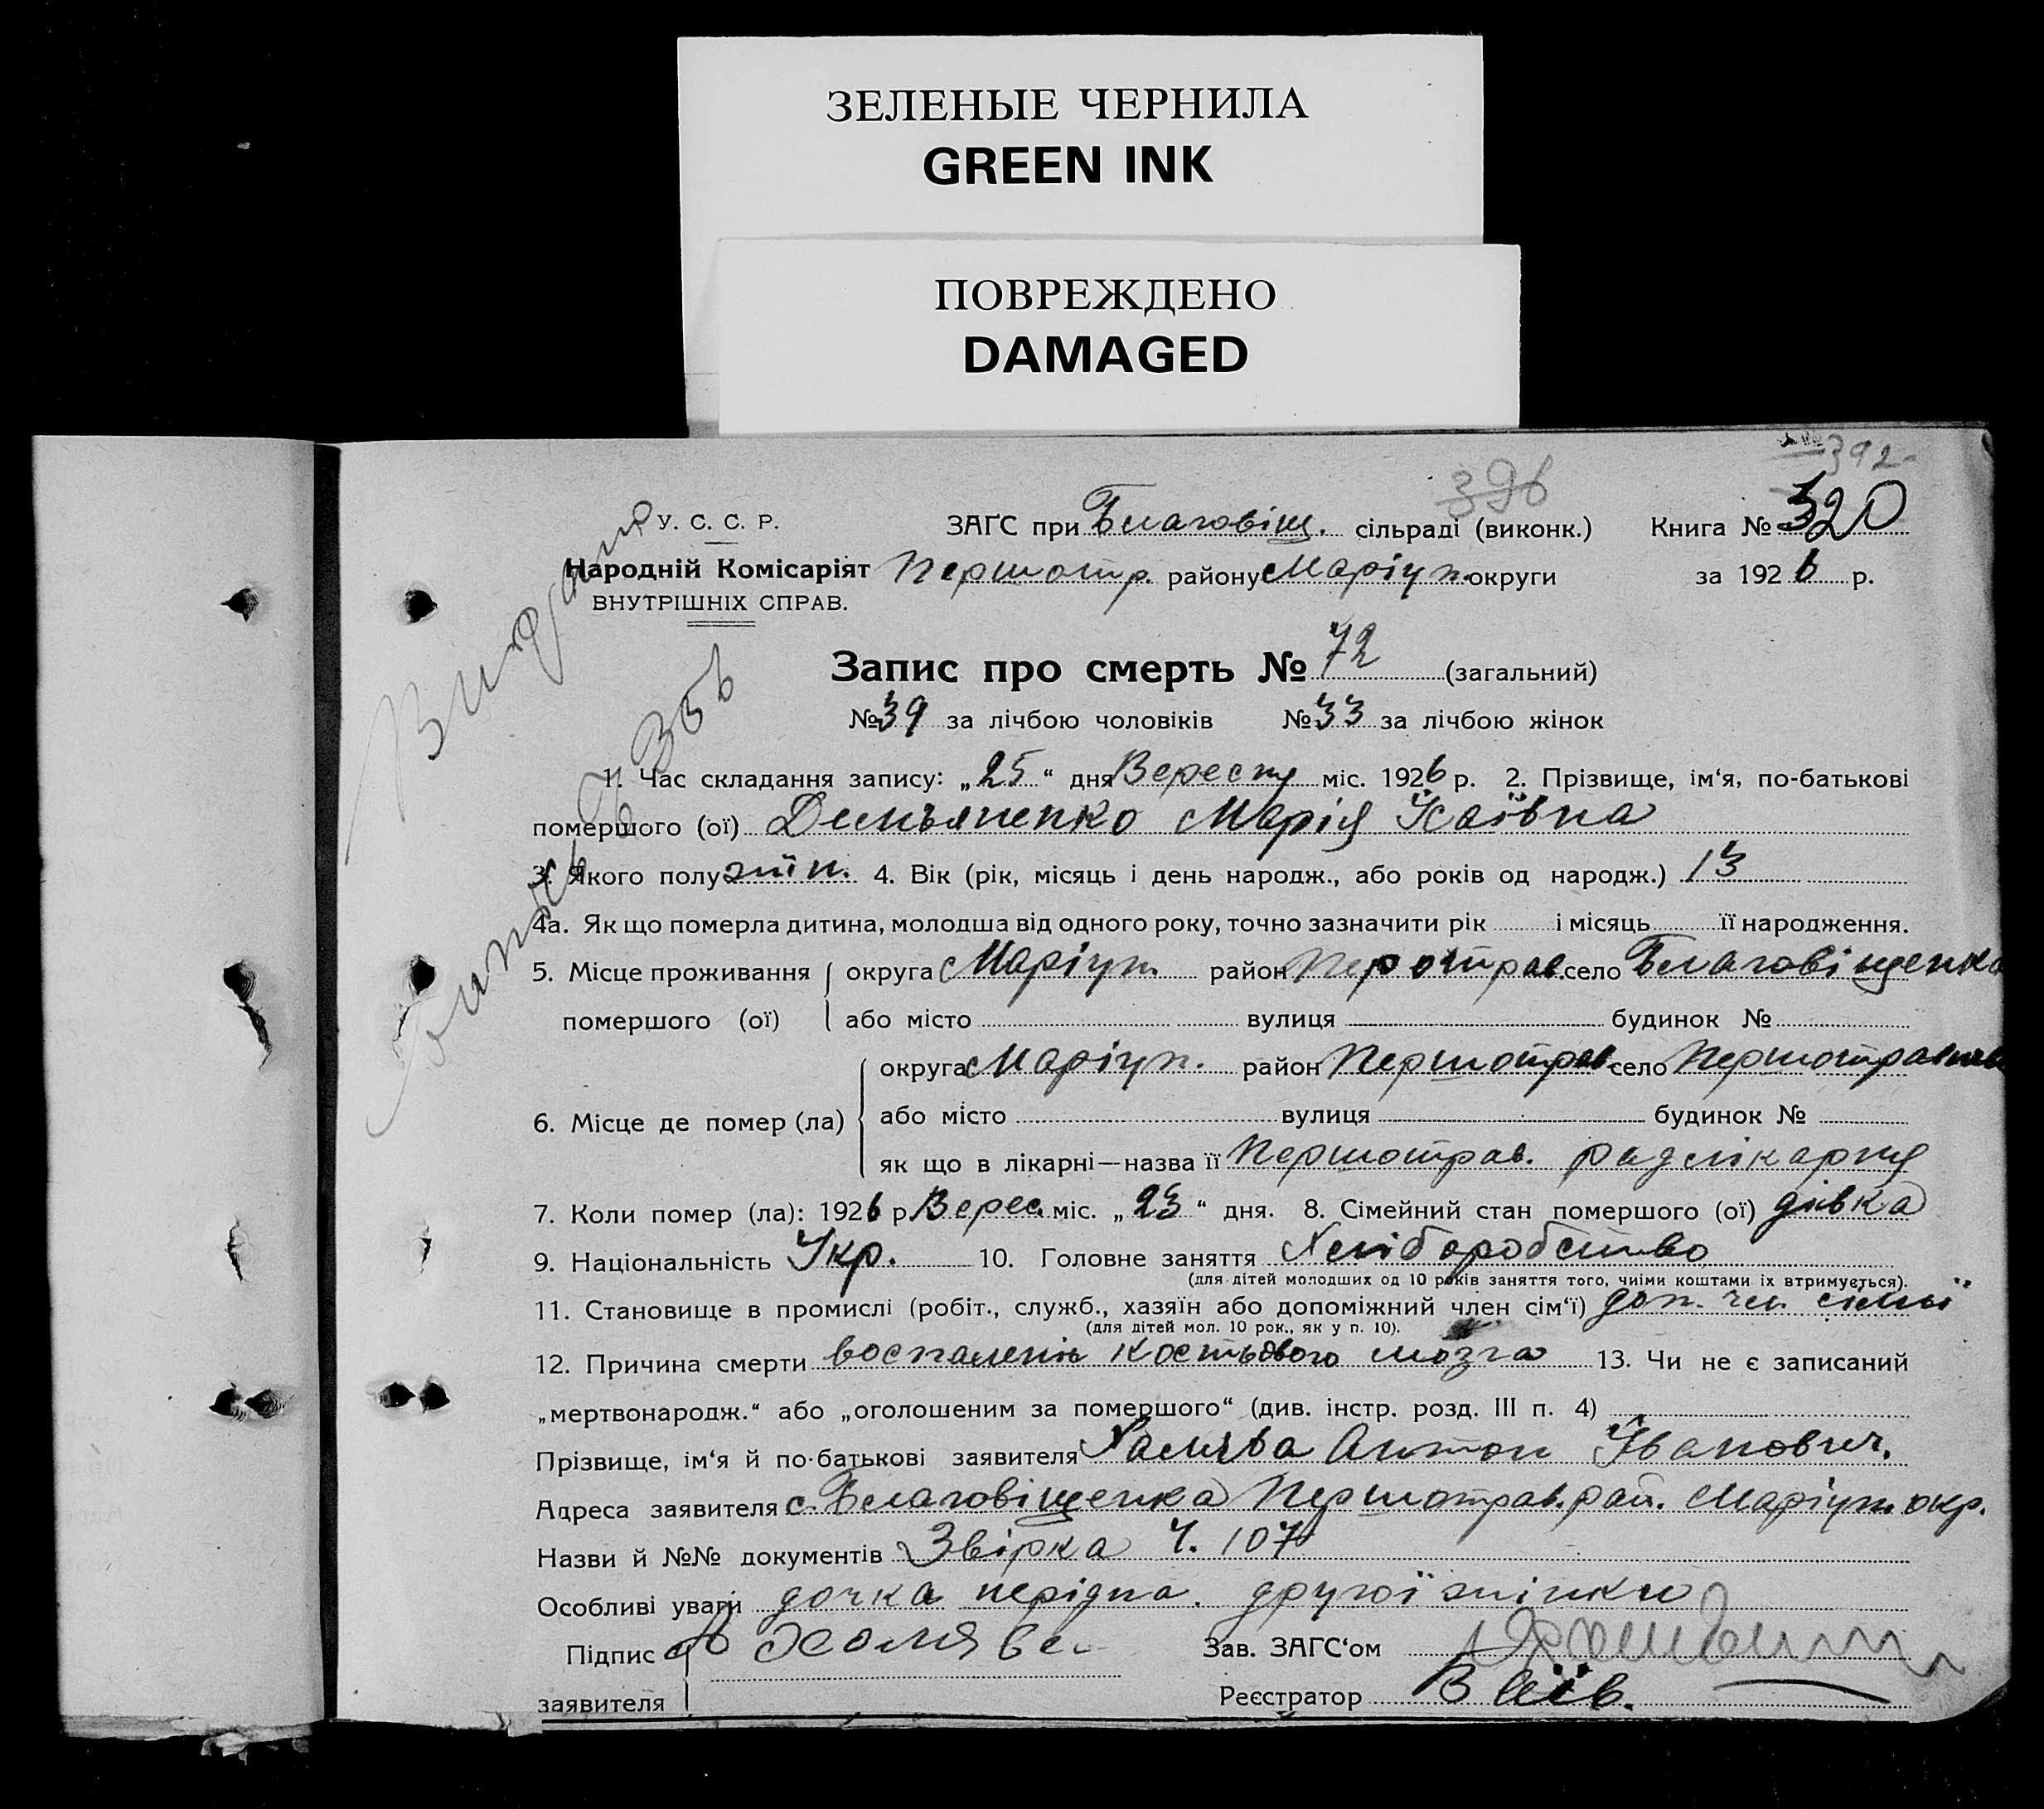 ЗЕЛЕНЫЕ ЧЕРНИЛА
GREEN INK
ПОВРЕЖДЕНО
DAMAGED
392
396
У. С. С. Р. ЗАҐС при Благовіщ. сільраді (виконк.) Книга № 320
Народній Комісаріят Першотр. району Маріуп. округи за 1926 р.
ВНУТРІШНІХ СПРАВ.
Запис про смерть № 72 (загальний)
№ 39 за лічбою чоловіків № 33 за лічбою жінок
1. Час складання запису: „25“ дня Вересня міс. 1926 р. 2. Прізвище, ім‘я, по-батькові
помершого (ої) Демьяненко Марія Ісаївна
3. Якого полу жін. 4. Вік (рік, місяць і день народж., або років од народж.) 13
4а. Як що померла дитина, молодша від одного року, точно зазначити рік і місяць її народження.
5. Місце проживання округа Маріуп. район Першотрав. село Благовіщенка
помершого (ої) або місто вулиця будинок №
округа Маріуп. район Першотрав. село
6. Місце де помер (ла) або місто вулиця будинок №
як що в лікарні—назва її Першотрав. радлікарня
7. Коли помер (ла): 1926 р. Верес. міс. „23“ дня. 8. Сімейний стан помершого (ої) дівка
9. Національність Укр. 10. Головне заняття Хліборобство
(для дітей молодших од 10 років заняття того, чиїми коштами їх втримується).
11. Становище в промислі (робіт., служб., хазяїн або допоміжний член сім‘ї) доп. чл. сімьї
(для дітей мол. 10 рок., як у п. 10).
12. Причина смерти воспаленіє костьового мозга 13. Чи не є записаний
„мертвонародж.“ або „оголошеним за помершого“ (див. інстр. розд. III п. 4)
Прізвище, ім‘я й по-батькові заявителя Халява Антон Іванович.
Адреса заявителя с. Благовіщенка Першотрав. рай. Маріуп. окр.
Назви й №№ документів Звірка Ч. 107
Особливі уваги дочка нерідна. другої жінки
Підпис Зав. ЗАГС‘ом
заявителя Реєстратор